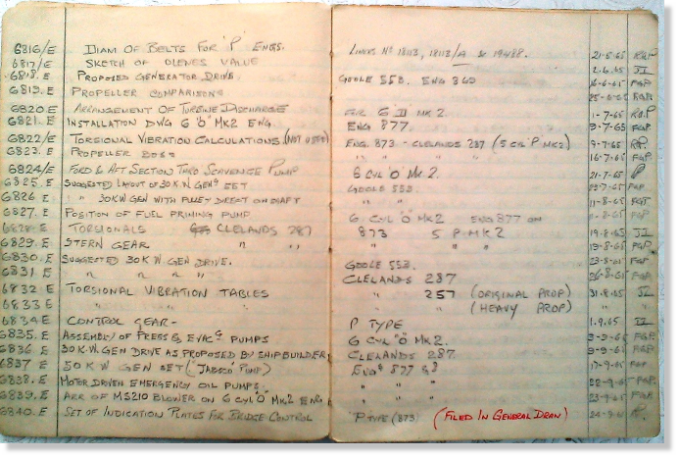 6816/E DIAM OF BELTS FOR 'P' ENGS. LINERS Nº 18113, 18113/A & 19488. 21-5-65
6817/E SKETCH OF VALUE 2.6.65 JJ
6818.E PROPOSED GENERATOR DRIVE. GOOLE 553. ENG 860 PGP
6819.E PROPELLER COMPARISONS
6820.E ARRANGEMENT OF TURBINE DISCHARGE FOR MK2.
6821.E INSTALLATION DWG 6 'O' MK2 ENG. ENG 877. 65 PGP
6822/E TORSIONAL VIBRATION CALCULATIONS (NOT USED) ENG 873 - CLELANDS 287 (5 CYL 'P' MK2) 9-7-65
6823.E PROPELLER " " " " 16-7-65 PGP
6824/E FORD & AFT SECTION THRO SCAVENGE PUMP 6 CYL 'O' MK 2. 21-7-65
6825.E SUGGESTED LAYOUT OF 30 K.W. GENR SET GOOLE 553. 7-65 PGP
6826.E " " 30KW GEN WITH PULLEY DIRECT ON SHAFT " " 11-8-65
6827.E POSITION OF FUEL PRIMING PUMP 6 CYL 'O' MK2 ENG 877 ON 8-65 PGP
6828.E TORSIONALS CLELANDS 287 873 5 P MK2 19-8-65 JJ
6829.E STERN GEAR " " " " " 19-8-65 PGP
6830.E SUGGESTED 30 K.W GEN DRIVE. GOOLE 553. 65 PGP
6831.E " " " " CLELANDS 287 26-8-65 PGP
6832 E TORSIONAL VIBRATION TABLES " 257 (ORIGINAL PROP) 31.8.65 JJ
6833 E " " " " " (HEAVY PROP) " "
6834 E CONTROL GEAR- P TYPE 1.9.65 JJ
6835.E ASSEMBLY OF PRESS & EVACG PUMPS 6 CYL 'O' MK 2. 9-65 PGP
6836 E 30 K.W. GEN DRIVE AS PROPOSED BY SHIPBUILDER CLELANDS 287. 9-65 PGP
6837 E 30 K.W GEN SET ("JABSCO" PUMP) ENGS 877 17-9-65 PGP
6838.E MOTOR DRIVEN EMERGENCY OIL PUMPS. " " 22-9-65 PGP
6839.E ARR OF MS210 BLOWER ON 6 CYL 'O' MK.2 ENG " " 23-9-65 PGP
6840.E SET OF INDICATION PLATES FOR BRIDGE CONTROL P TYPE (873) (FILED IN GENERAL DRAW) 65